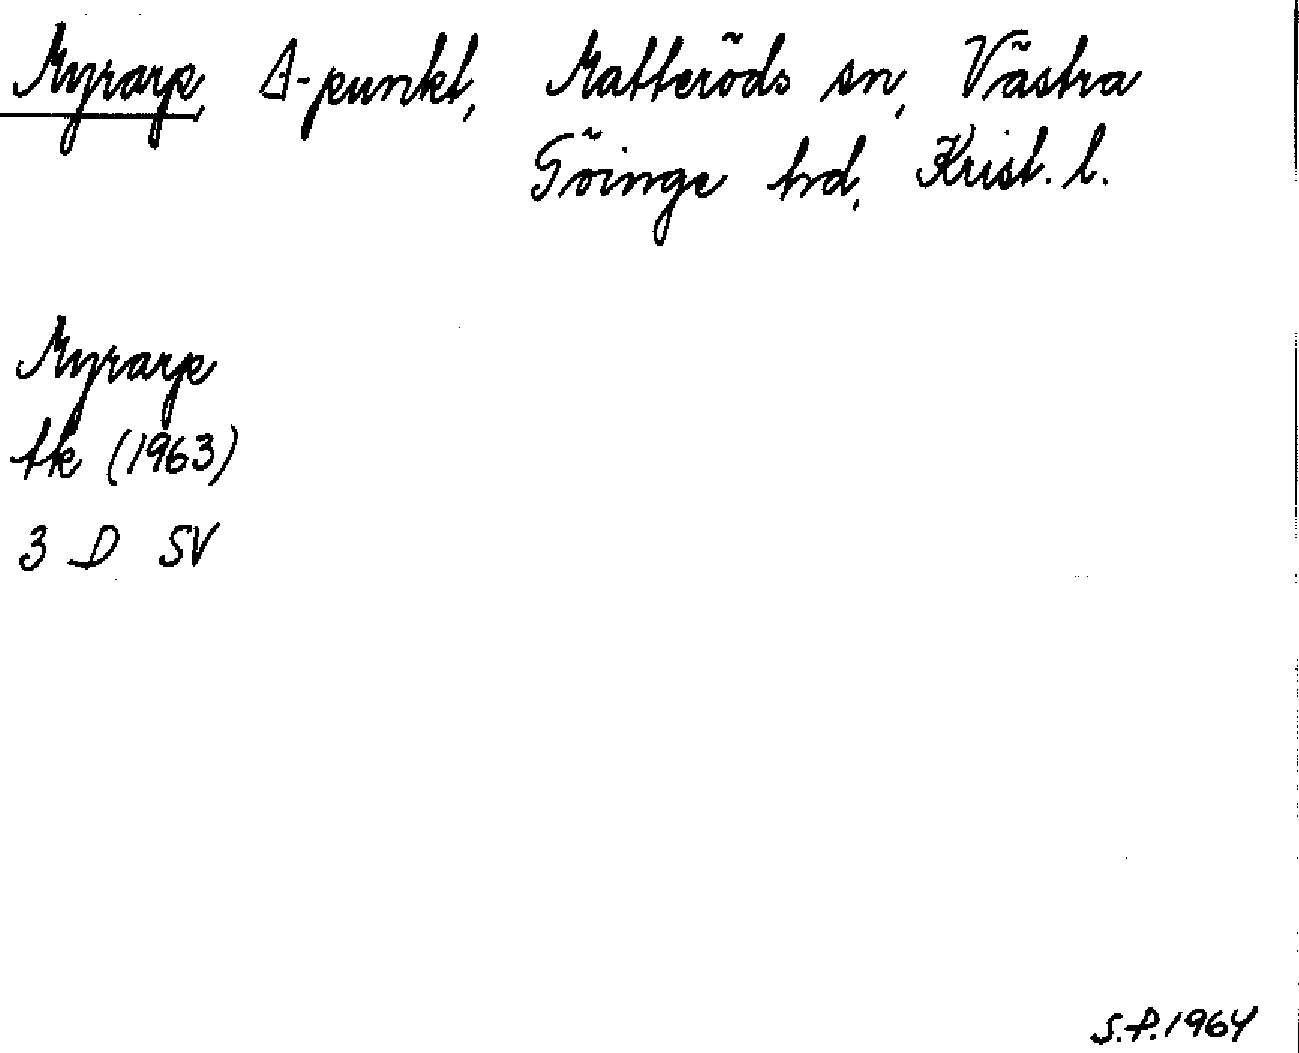 Myrarp, Δ-punkt, Matteröds sn, Västra
Göinge hrd, Krist. l.
Myrarp
tk (1963)
3 D SV
S.P. 1964